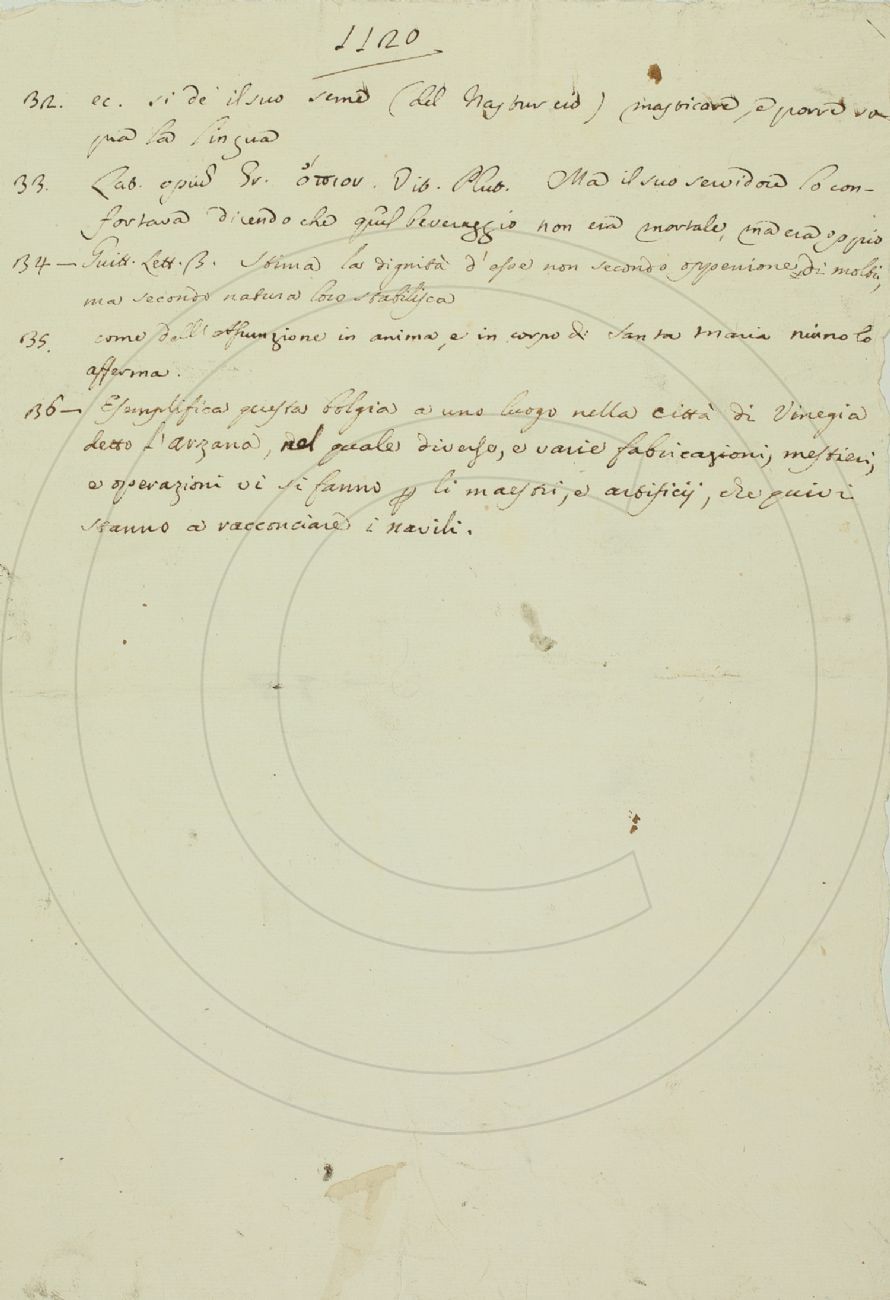 1120
32. ec. si dè il suo seme (del Nasturcio) masticare, e porre so-
pra la lingua
33. Lat. opiũ Gr. ὄπιον. Vit. Plut. Ma il suo servidore lo con-
fortava dicendo che quel beveraggio non era mortale, ma era oppio
134 — Guitt. Lett. 3. Stima la dignità d'esse non secondo oppenione di molti,
ma secondo natura loro stabilisca
135. come dell'assunzione in anima, e in corpo di Santa Maria niuno lo
afferma.
136 — Esemplifica questa bolgia a uno luogo nella città di Vinegia
detto l'arzanà, nel quale diverse, e varie fabricazioni, mestieri,
e operazioni vi si fanno ꝑ li maestri, e artificij, che quivi
stanno a racconciare i navili.